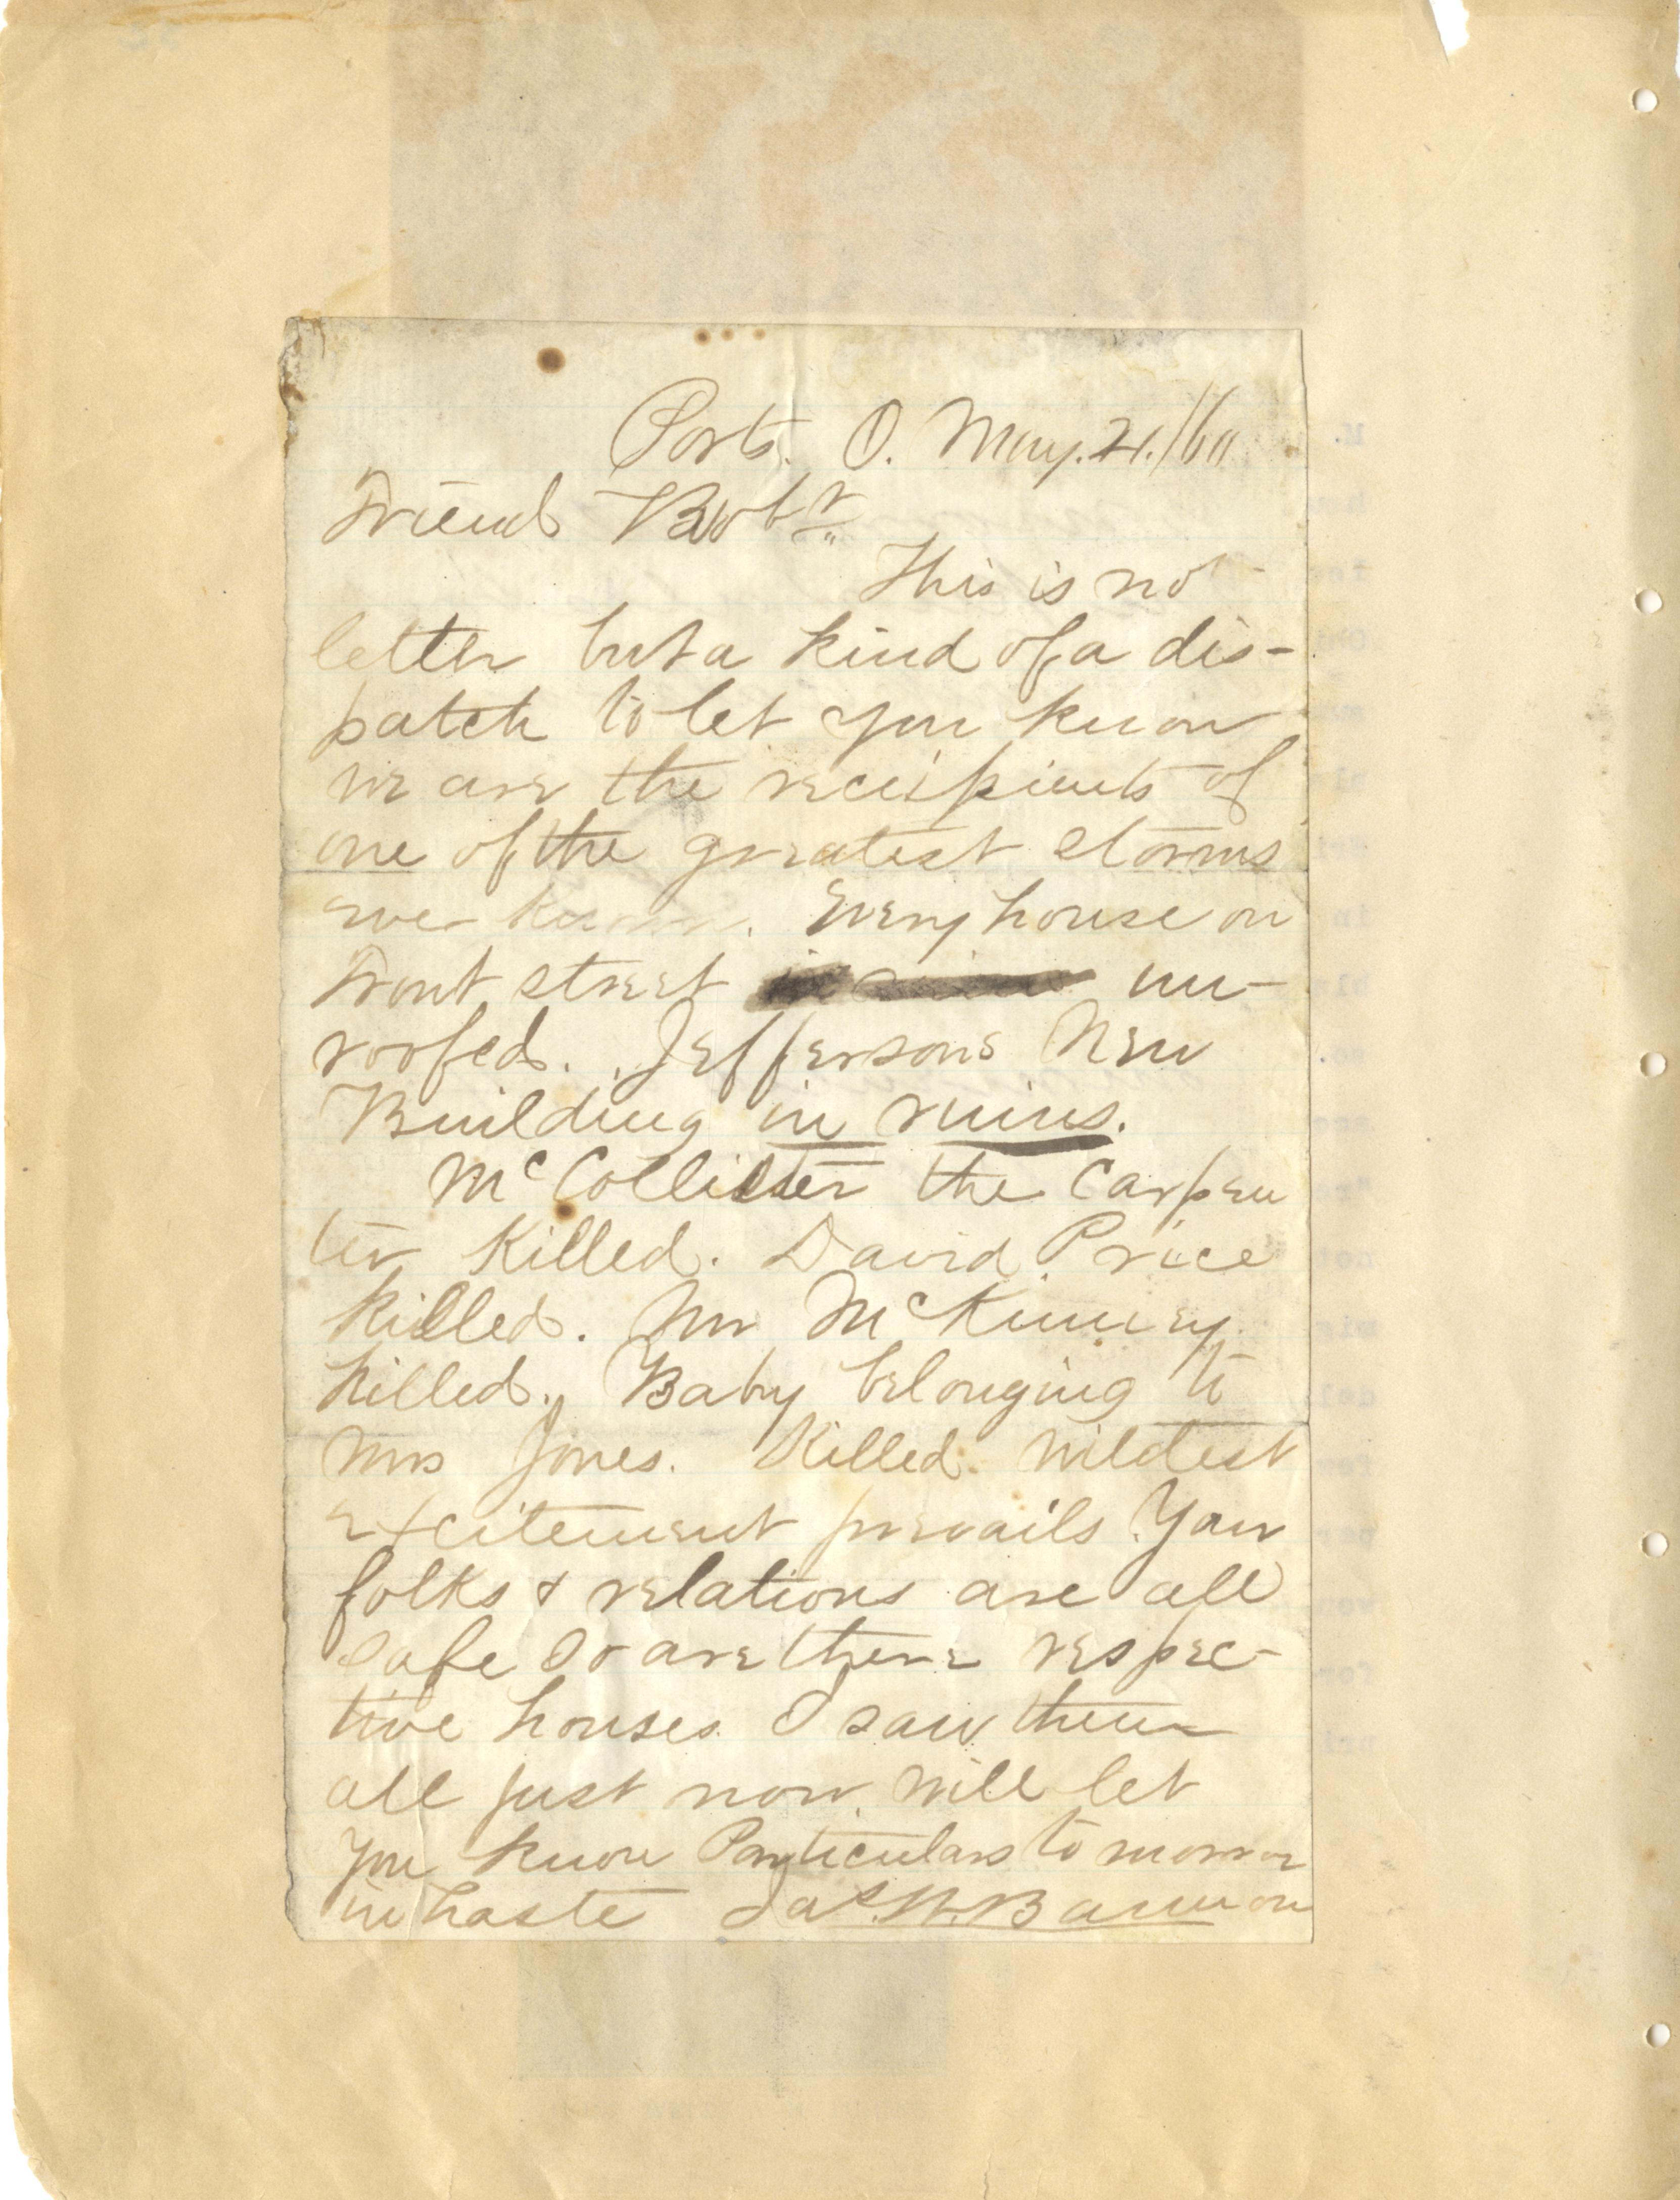 Ports. O. May. 21./60
Friend Bob
This is no
letter but a kind of a dis-
patch to let you know
we are the recipients of
one of the greatest storms
ever known. Every house on
Front street un-
roofed. Jeffersons New
Building in ruins.
McCollister the Carpen
ter Killed. David Price
killed. Mr McKinney
killed. Baby belonging to
Mrs Jones. Killed. Wildest
excitement prevails Your
folks & relations are all
safe so are there respec-
tive houses. I saw them
all just now. Will let
you know Particulars to morrow
in haste Jas. W. Bannon